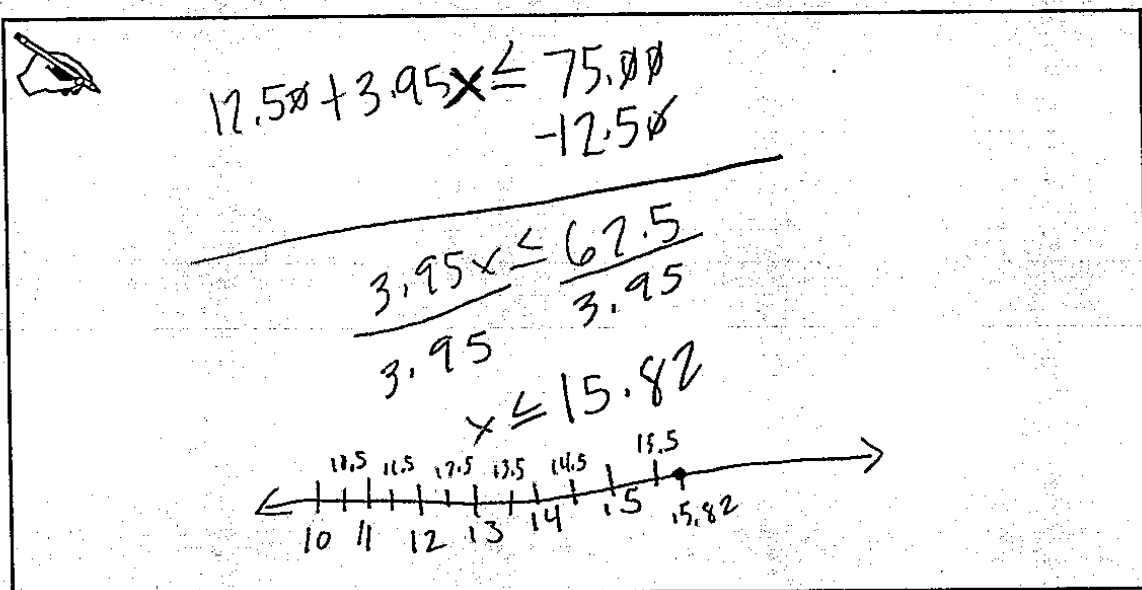 12.50+3.95x ≤ 75.00
-12.50
3.95x ≤ 62.5
3.95 3.95
x ≤ 15.82
10.5 11.5 12.5 13.5 14.5 15.5
10 11 12 13 14 15 15.82